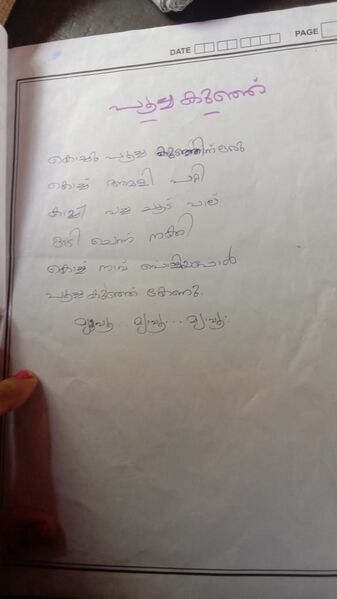 DATE
PAGE
പൂച്ച കുഞ്ഞ്
കൊച്ചു പൂച്ച കുഞ്ഞിന് ഒരു
കൊച്ച് അമളി പറ്റി
കാച്ചി വച്ച ചൂട് പാല്
ഓടി ചെന്ന് നക്കി
കൊച്ച് നാവ് പൊള്ളിയപ്പോൾ
പൂച്ച കുഞ്ഞ് കേണു.
മ്യാവൂ മ്യാവൂ... മ്യാവൂ.